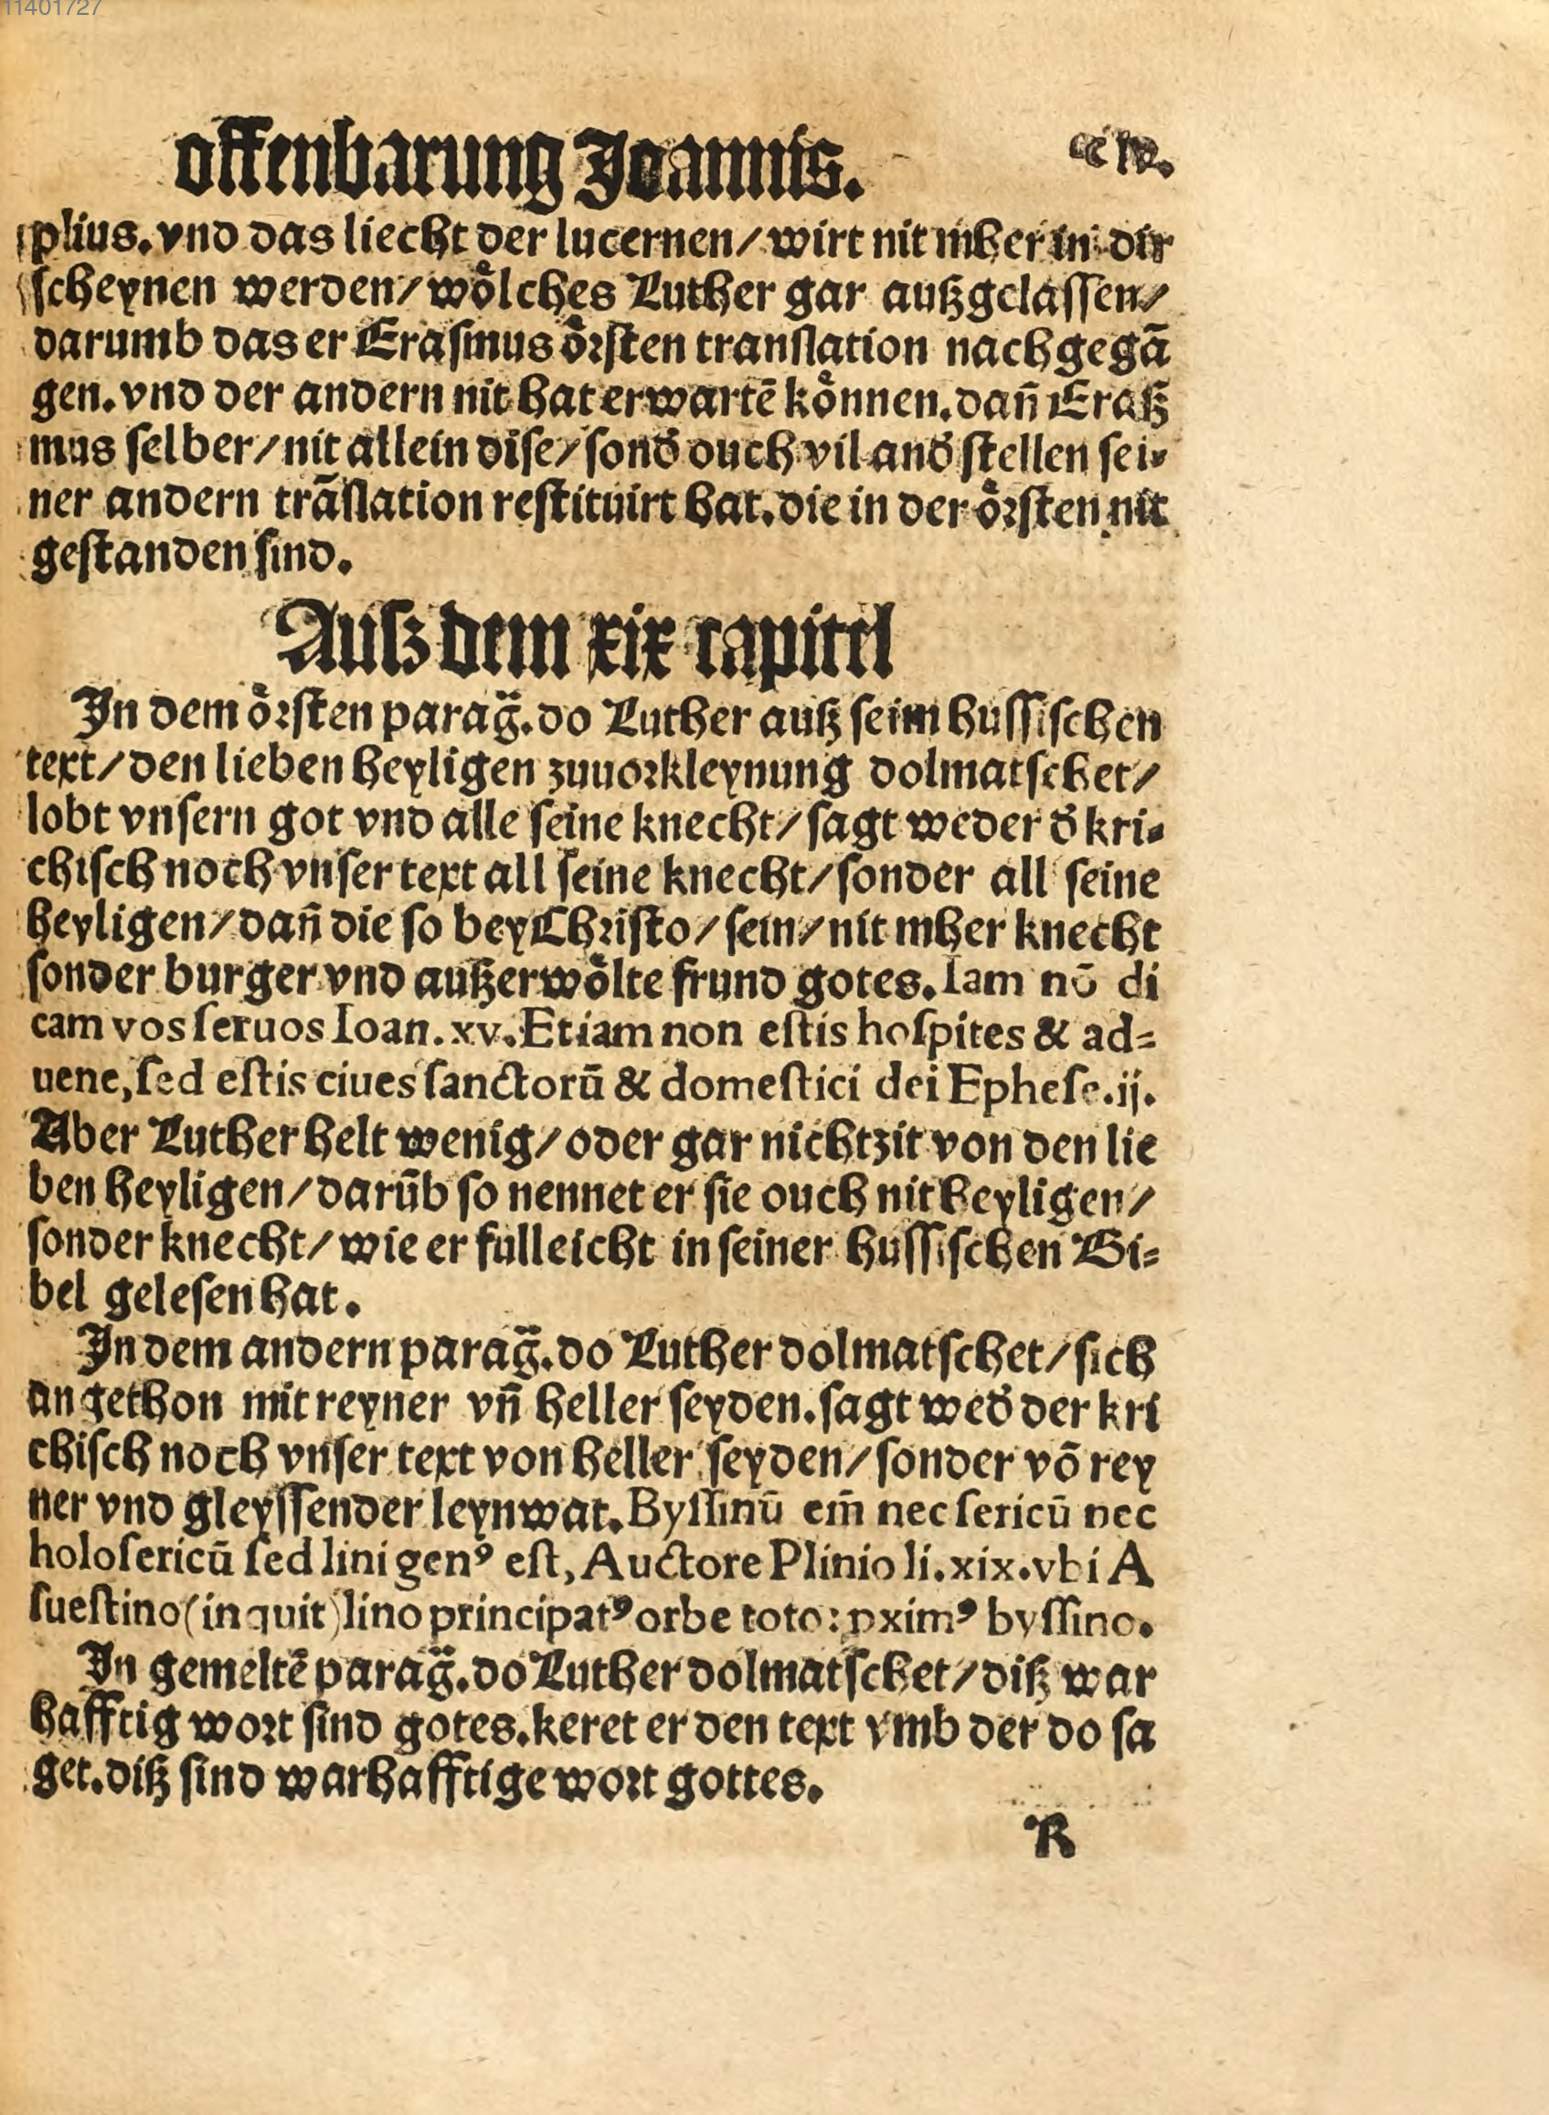 11401727
offenbarung Joannis.
plius. vnd das liecht der lucernen/ wirt nit mher in dir
ſcheynen werden/ woͤlches Luther gar außgelaſſen/
darumb das er Eraſmus oͤrſten tranſlation nachgegā
gen. vnd der andern nit hat erwartē koͤnnen. dañ Eraß
mus ſelber/ nit allein diſe/ ſond̓ ouch vil and̓ ſtellen ſei⸗
ner andern trāſlation reſtituirt hat. die in der oͤrſten nit
geſtanden ſind.
Auſz dem xix capitel
In dem oͤrſten parag̈. do Luther auß ſeim huſſiſchen
text/ den lieben heyligen zuuorkleynung dolmatſchet/
lobt vnſern got vnd alle ſeine knecht/ ſagt weder d̓ kri⸗
chiſch noch vnſer text all ſeine knecht/ ſonder all ſeine
heyligen/ dañ die ſo bey Chriſto/ ſein/ nit mher knecht
ſonder burger vnd außerwoͤlte frund gotes. Iam nō di
cam vos ſeruos Ioan. xv. Etiam non eſtis hoſpites & ad⸗
uene, ſed eſtis ciues ſanctorū & domeſtici dei Epheſe. ij.
Aber Luther helt wenig/ oder gar nichtzit von den lie
ben heyligen/ darūb ſo nennet er ſie ouch nit heyligen/
ſonder knecht/ wie er fulleicht in ſeiner huſſiſchen Bi⸗
bel geleſen hat.
In dem andern parag̈. do Luther dolmatſchet/ ſich
angethon mit reyner vñ heller ſeyden. ſagt wed̓ der kri
chiſch noch vnſer text von heller ſeyden/ ſonder vō rey
ner vnd gleyſſender leynwat. Byſſinū em̄ nec ſericū nec
holoſericū ſed lini genꝰ eſt, Auctore Plinio li. xix. vbi A
ſueſtino (inquit) lino principatꝰ orbe toto: ꝓximꝰ byſſino.
In gemeltē parag̈. do Luther dolmatſchet/ diß war
hafftig wort ſind gotes. keret er den text vmb der do ſa
get. diß ſind warhafftige wort gottes.
R